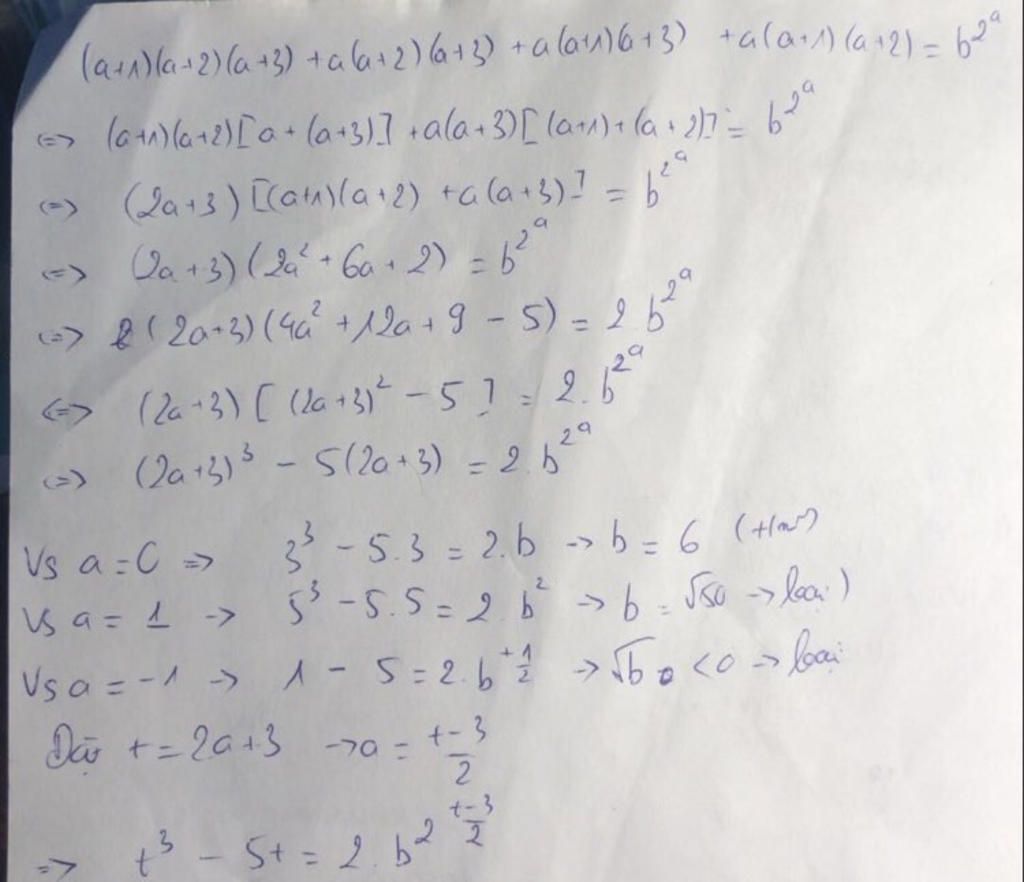 (a+1)(a+2)(a+3) + a(a+2)(a+3) + a(a+1)(a+3) + a(a+1)(a+2) = b^{2^a}
<=> (a+1)(a+2)[a + (a+3)] + a(a+3)[(a+1) + (a+2)] = b^{2^a}
<=> (2a+3)[(a+1)(a+2) + a(a+3)] = b^{2^a}
<=> (2a+3)(2a² + 6a + 2) = b^{2^a}
<=> (2a+3)(4a² + 12a + 9 - 5) = 2 b^{2^a}
<=> (2a+3)[(2a+3)² - 5] = 2.b^{2^a}
<=> (2a+3)³ - 5(2a+3) = 2.b^{2^a}
Vs a = 0 => 3³ - 5.3 = 2.b -> b = 6 (t/m)
Vs a = 1 -> 5³ - 5.5 = 2 b² -> b = √50 -> loại)
Vs a = -1 -> 1 - 5 = 2.b^{+1/2} -> √b < 0 -> loại
Đặt t = 2a+3 -> a = \frac{t-3}{2}
=> t³ - 5t = 2.b^{2^{\frac{t-3}{2}}}